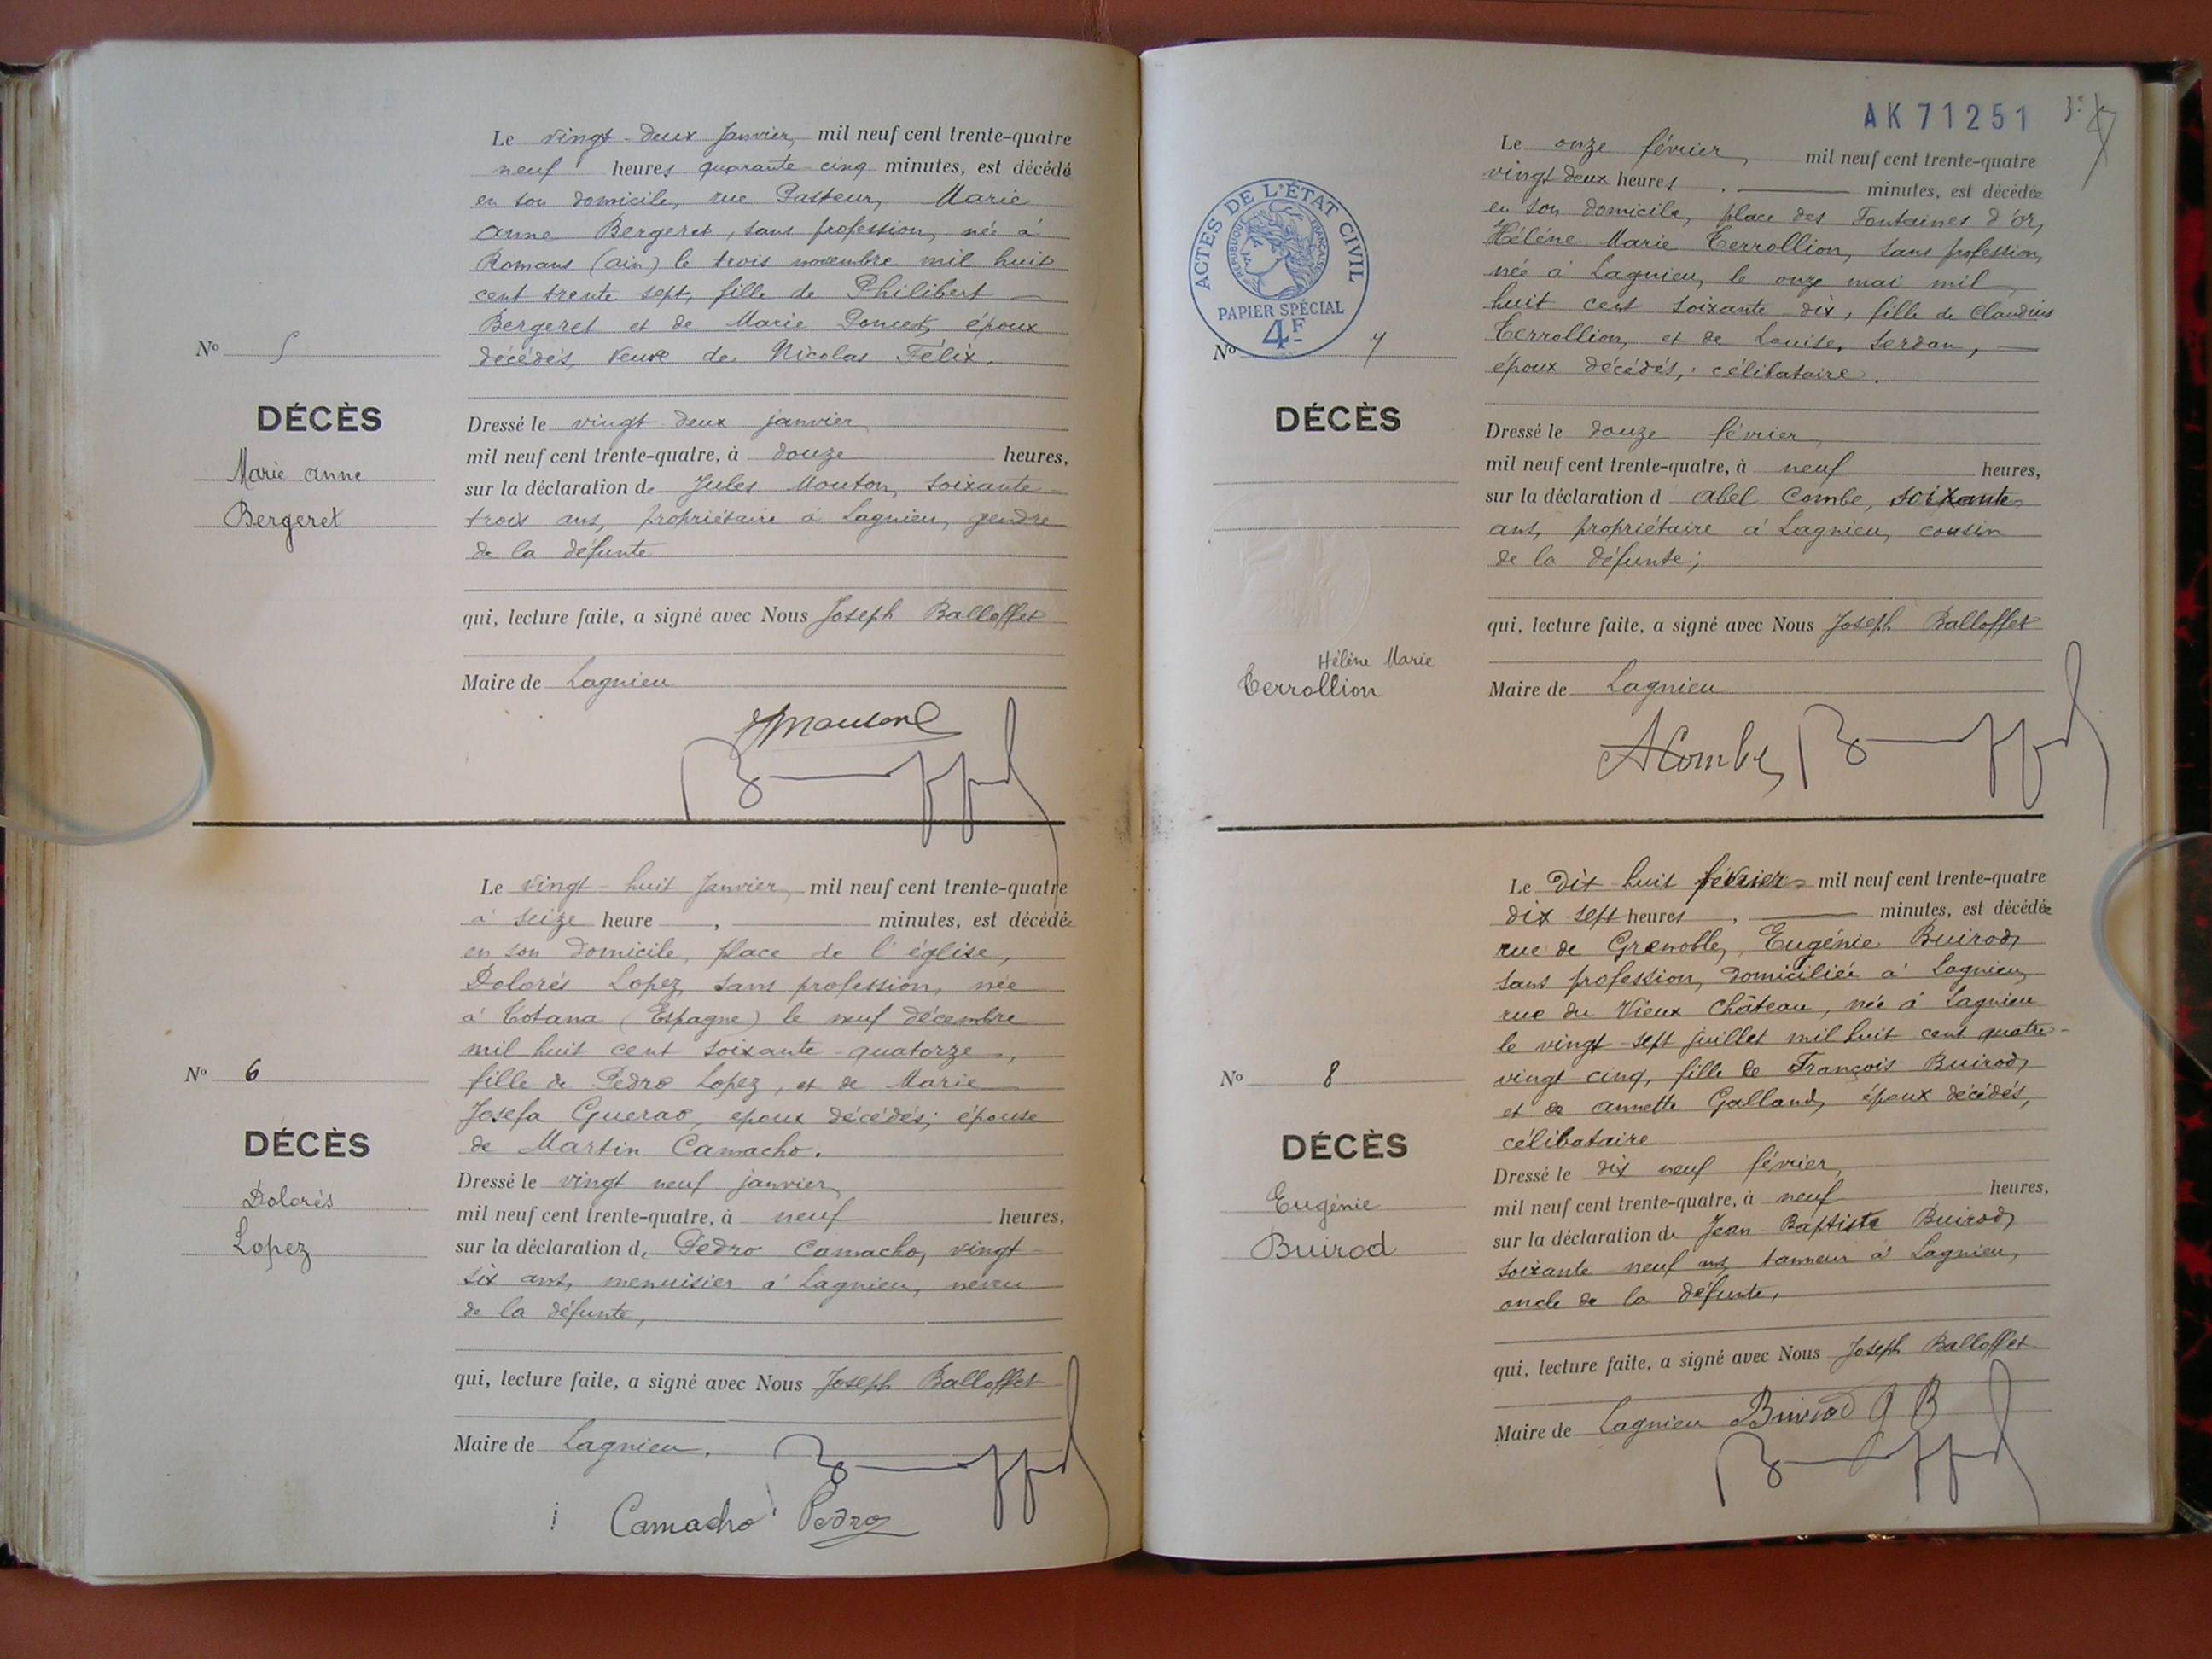 Le vingt-deux Janvier, mil neuf cent trente-quatre
neuf heures quarante cinq minutes, est décédé
en son domicile, rue Pasteur, Marie
Anne Bergeret, sans profession, née à
Romans (Ain) le trois novembre mil huit
cent trente sept, fille de Philibert
Bergeret et de Marie Doncet, époux
décédés, veuve de Nicolas Félix.
No 5
DÉCÈS
Marie Anne
Bergeret
Dressé le vingt deux janvier
mil neuf cent trente-quatre, à douze heures,
sur la déclaration de Jules Mouton, soixante-
trois ans, propriétaire à Lagnieu, gendre
de la défunte
qui, lecture faite, a signé avec Nous Joseph Balloffet
Maire de Lagnieu
Le vingt-huit Janvier, mil neuf cent trente-quatre
à seize heure , minutes, est décédée
en son domicile, place de l'église,
Dolorès Lopez, sans profession, née
à Totana (Espagne) le neuf décembre
mil huit cent soixante-quatorze,
fille de Pedro Lopez, et de Marie
Josefa Guerao, époux décédés; épouse
de Martin Camacho.
No 6
DÉCÈS
Dolorès
Lopez
Dressé le vingt neuf janvier,
mil neuf cent trente-quatre, à neuf heures,
sur la déclaration de Pedro Camacho, vingt-
six ans, menuisier à Lagnieu, neveu
de la défunte,
qui, lecture faite, a signé avec Nous Joseph Balloffet
Maire de Lagnieu.
Camacho Pedro
AK 71251
Le onze février, mil neuf cent trente-quatre
vingt deux heures , minutes, est décédée
en son domicile, place des Fontaines d'or,
Hélène Marie Terrollion, sans profession,
née à Lagnieu, le onze mai mil
huit cent soixante-dix, fille de Claudius
Terrollion, et de Louise, Serdan,
époux décédés, célibataire.
ACTES DE L'ÉTAT CIVIL
RÉPUBLIQUE FRANÇAISE
PAPIER SPÉCIAL
4F
No 7
DÉCÈS
Hélène Marie
Terrollion
Dressé le douze février,
mil neuf cent trente-quatre, à neuf heures,
sur la déclaration d Abel Combe, soixante
ans, propriétaire à Lagnieu, cousin
de la défunte;
qui, lecture faite, a signé avec Nous Joseph Balloffet
Maire de Lagnieu
ACombe
Le Dix huit février mil neuf cent trente-quatre
dix sept heures , minutes, est décédée
rue de Grenoble, Eugénie Buirod,
sans profession, domiciliée à Lagnieu,
rue du Vieux Château, née à Lagnieu
le vingt-sept juillet mil huit cent quatre-
vingt cinq, fille de François Buirod,
et de Annette Galland, époux décédés,
célibataire
No 8
DÉCÈS
Eugénie
Buirod
Dressé le dix neuf février,
mil neuf cent trente-quatre, à neuf heures,
sur la déclaration de Jean Baptiste Buirod,
soixante neuf ans, tanneur à Lagnieu,
oncle de la défunte,
qui, lecture faite, a signé avec Nous Joseph Balloffet
Maire de Lagnieu Buirod